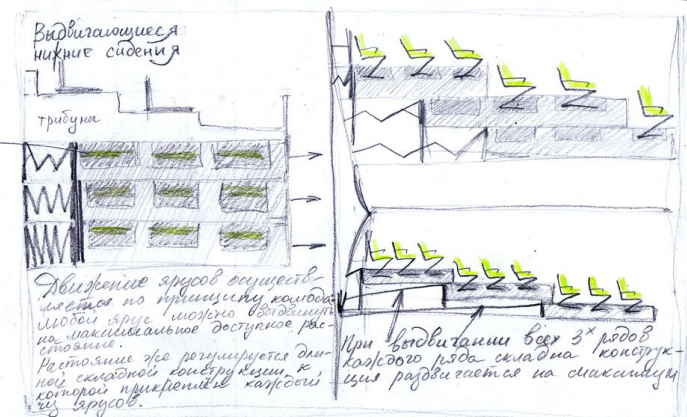 Выдвигающиеся
нижние сидения
трибуны
Движение ярусов осуществ-
ляется по принципу комода.
Любой ярус можно выдвинуть
на максимальное доступное рас-
стояние.
Растояние же регулируется дли-
ной складной конструкции, к
которой прикреплён каждый
из ярусов.
При выдвигании всех 3х рядов
каждого ряда складна конструк-
ция раздвигается на максимум